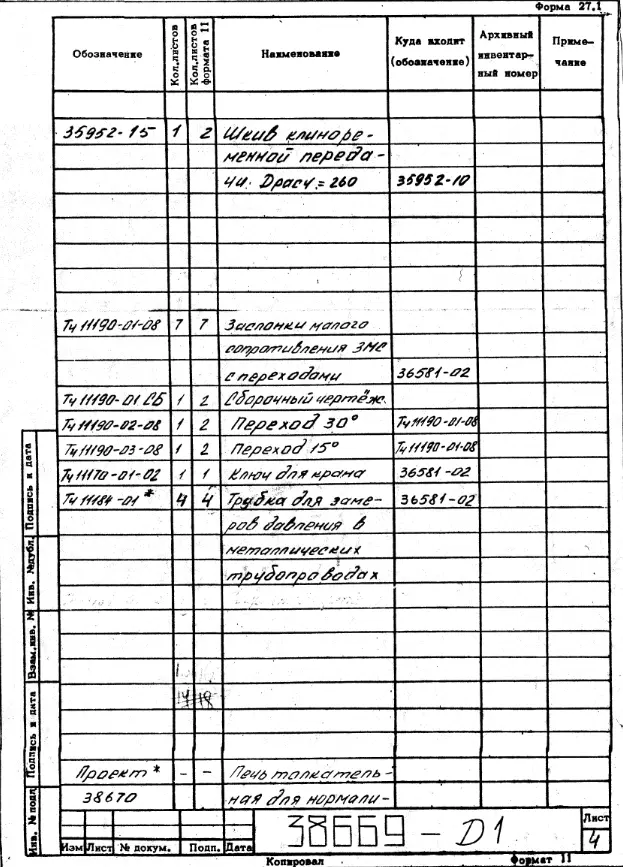 Форма 27.1
Обозначение Кол.листов Кол.листов формата 11 Наименование Куда входит (обозначение) Архивный инвентар-ный номер Приме-чание
35952-15 1 2 Шкив клиноре-
менной переда-
чи. Dрасч.=260 35952-10
Тч 11190-01-08 7 7 Заслонки малого
сопротивления ЗМС
с переходами 36581-02
Тч 11190-01 СБ 1 2 Сборочный чертёж.
Тч 11190-02-08 1 2 Переход 30° Тч 11190-01-08
Тч 11190-03-08 1 2 Переход 15° Тч 11190-01-08
Тч 11170-01-02 1 1 Ключ для крана 36581-02
Тч 11184-01* 4 4 Трубка для заме- 36581-02
ров давления в
металлических
трубопроводах
14 18
Проект* - - Печь толкатель-
38670 ная для нормали-
Инв. № подл Подпись и дата Взам.инв. № Инв. №дубл. Подпись и дата
Изм Лист № докум. Подп. Дата
38669-D1
Лист
4
Копировал Формат 11